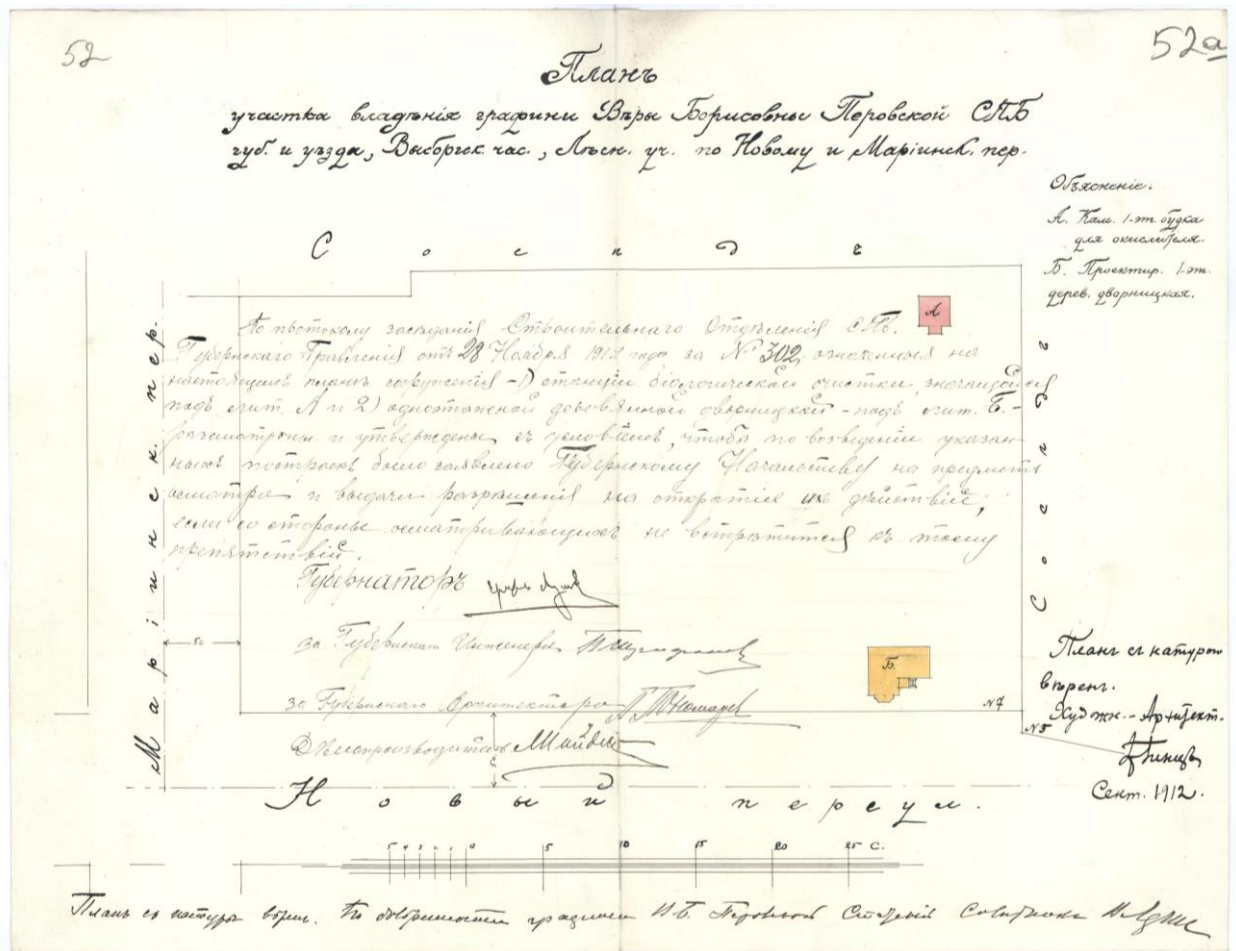 52
52а
Планъ
участка владѣнія графини Вѣры Борисовны Перовской СПБ
губ. и уѣзда, Выборгск. час., Лѣсн. уч. по Новому и Маріинск. пер.
Объясненіе.
А. Кам. 1-эт. будка
для окислителя.
Б. Проектир. 1-эт.
дерев. дворницкая.
Сосѣдъ
А
По протоколу засѣданія Строительнаго Отдѣленія СПБ.
Губернскаго Правленія отъ 28 Ноября 1912 года за № 302, означенныя на
настоящемъ планѣ сооруженія - 1) станціи біологической очистки, значащейся
подъ лит. А и 2) одноэтажной деревянной дворницкой - подъ лит. Б. -
разсмотрены и утверждены съ условіемъ, чтобы по возведеніи указан-
ныхъ построекъ было заявлено Губернскому Начальству на предметъ
осмотра и выдачи разрѣшенія на открытіе ихъ дѣйствій,
если со стороны осматривающихъ не встрѣтится къ тому
препятствій.
Маріинск. пер.
Сосѣдъ
Губернаторъ
за Губернскаго Инженера
за Губернскаго Архитектора
Дѣлопроизводитель
5с
5с
Б.
№7
№5
Планъ съ натурою
вѣренъ.
Худож. - Архитект.
Сент. 1912.
Новый переул.
5 4 3 2 1 0 5 10 15 20 25 С.
Планъ съ натурою вѣренъ. По довѣренности графини В. Б. Перовской Статскій Совѣтникъ